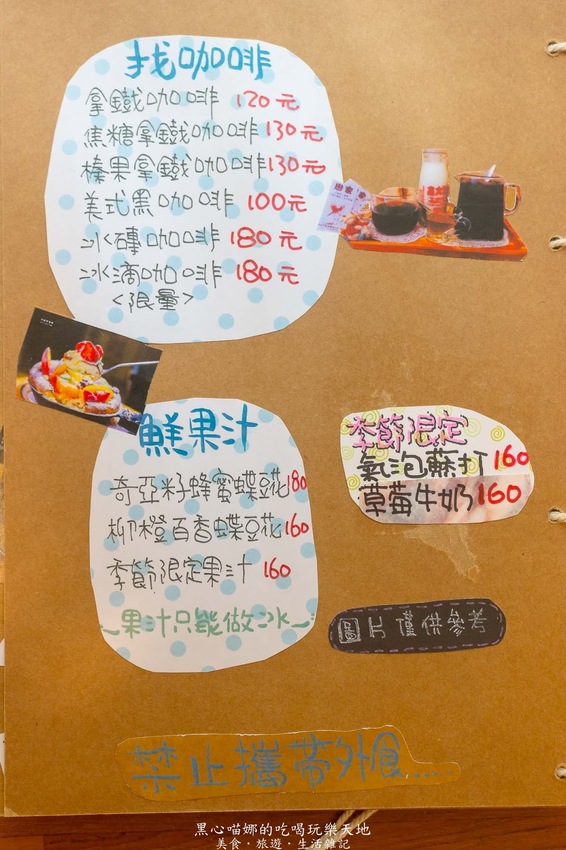 找咖啡
拿鐵咖啡 120元
焦糖拿鐵咖啡 130元
榛果拿鐵咖啡 130元
美式黑咖啡 100元
冰磚咖啡 180元
冰滴咖啡 180元
<限量>
鮮果汁
奇亞籽蜂蜜蝶豆花 180
柳橙百香蝶豆花 160
季節限定果汁 160
~果汁只能做冰~
季節限定
氣泡蘇打 160
草莓牛奶 160
圖片僅供參考
禁止攜帶外食....
黑心喵娜的吃喝玩樂天地
美食・旅遊・生活雜記